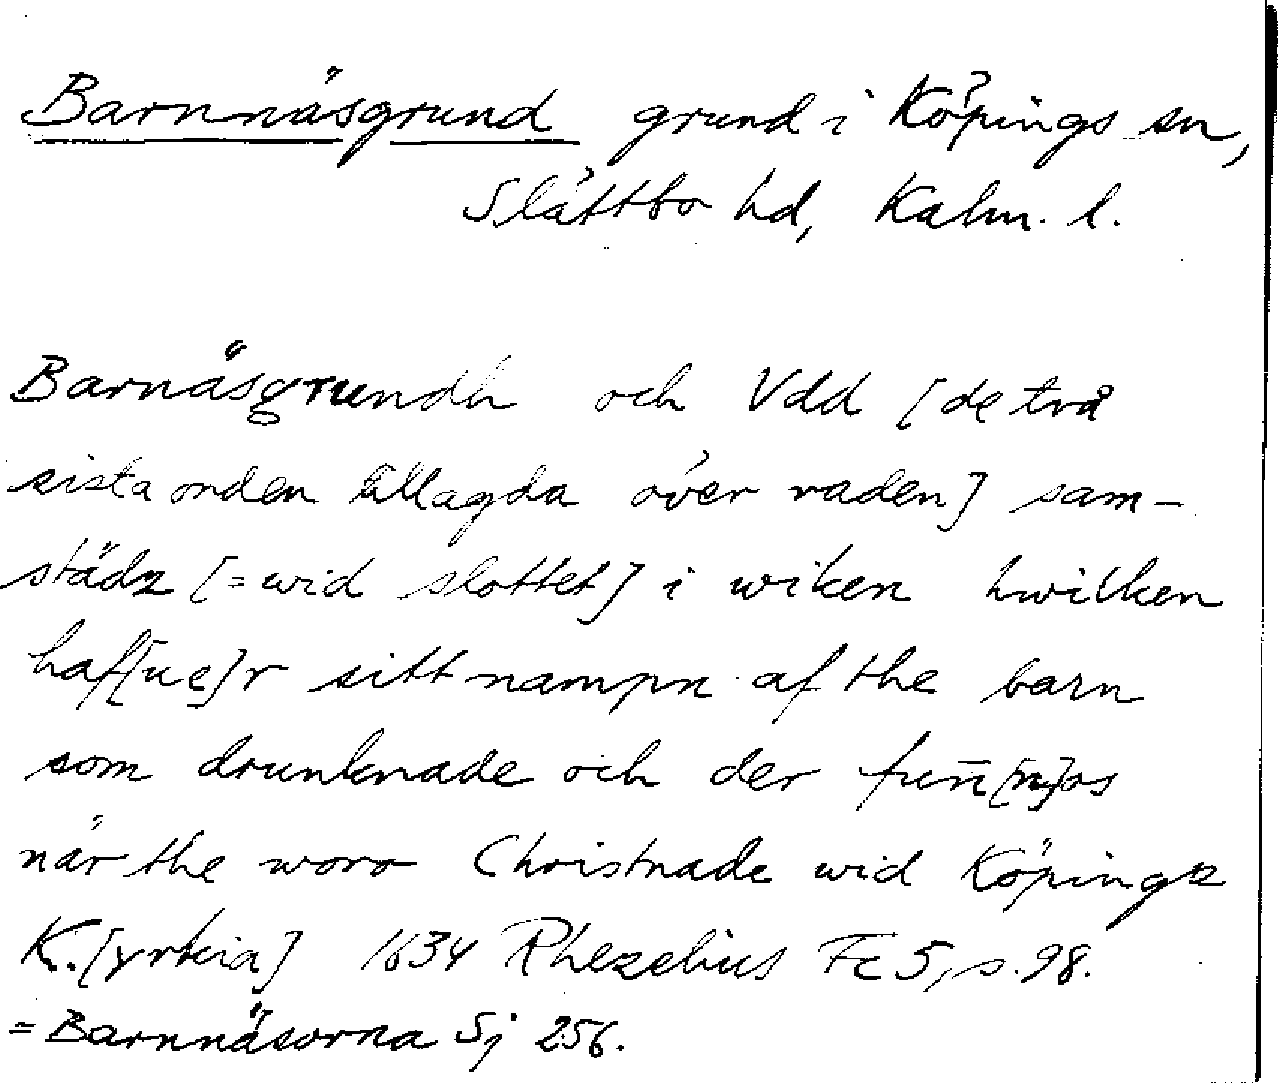 Barnnäsgrund grund i Köpings sn,
Slättbo hd, Kalm. l.
Barnäsgrundh och Vdd [de två
sista orden tillagda över raden] sam-
städz [= wid slottet] i wiken hwilken
haf[ue]r sitt nampn af the barn
som drunknade och der fun̄[n]os
när the woro Christnade wid Köpingz
K.[yrkia] 1634 Rhezelius Fc 5, s. 98.
= Barnnäsorna Sj 256.